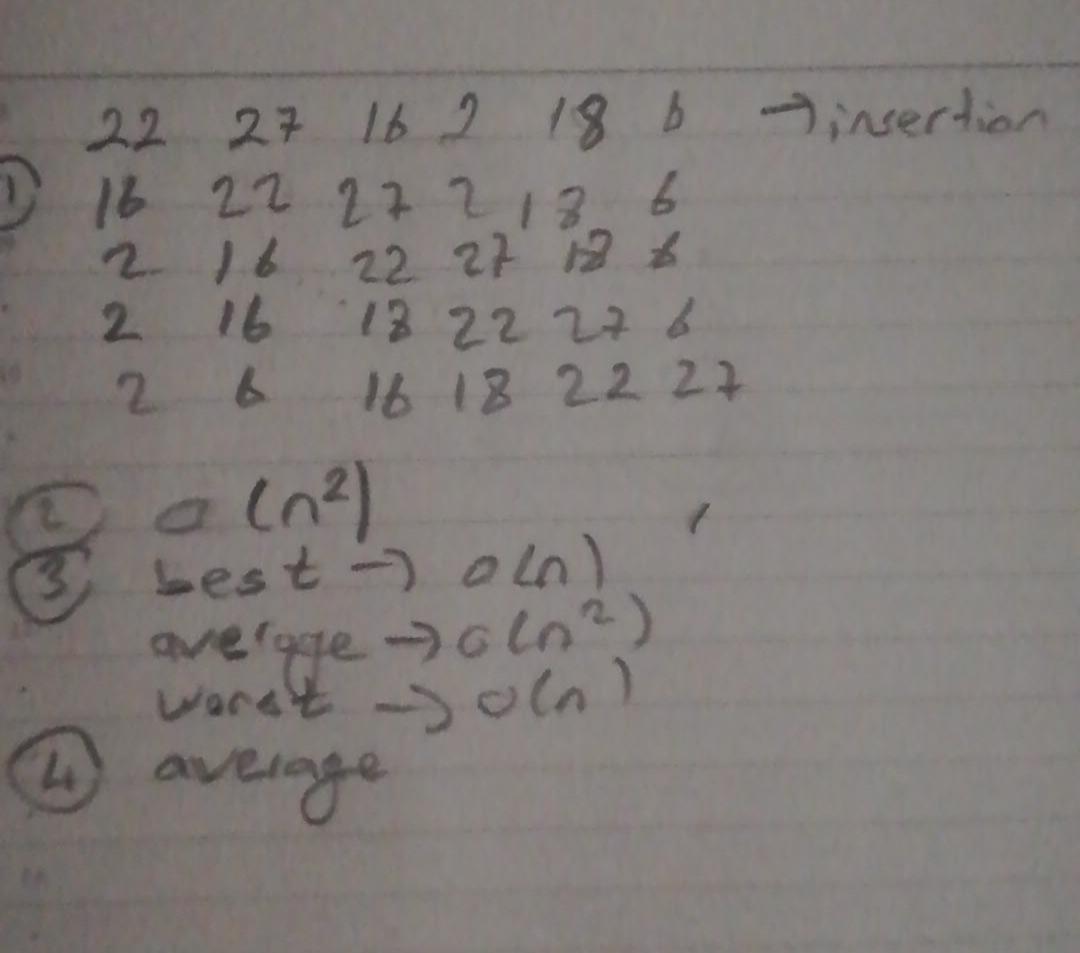 22 27 16 2 18 6 → insertion
① 16 22 27 2 18 6
2 16 22 27 18 6
2 16 18 22 27 6
2 6 16 18 22 27
② o (n²)
③ best → o(n)
average → o(n²)
worst → o(n)
④ average